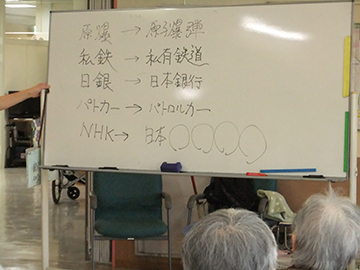 原爆→原子爆弾
私鉄→私有鉄道
日銀→日本銀行
パトカー→パトロールカー
NHK→日本○○○○